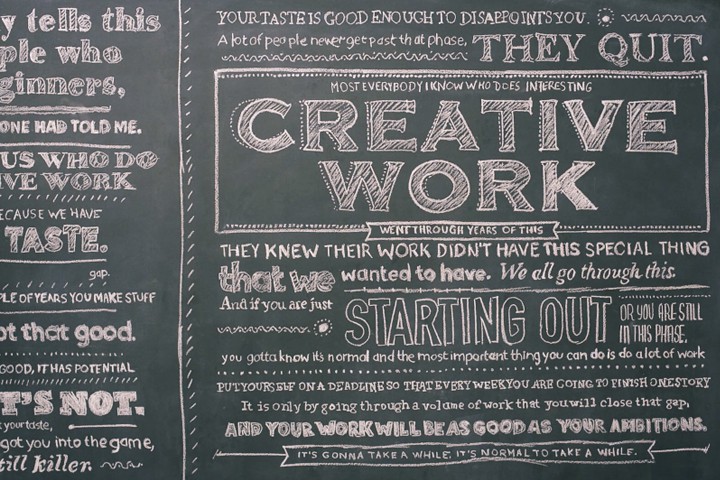 y tells this
ple who
ginners,
ONE HAD TOLD ME.
US WHO DO
IVE WORK
ECAUSE WE HAVE
TASTE.
gap.
PLE OF YEARS YOU MAKE STUFF
ot that good.
GOOD, IT HAS POTENTIAL
T'S NOT.
your taste,
got you into the game,
till killer.
YOUR TASTE IS GOOD ENOUGH TO DISAPPOINTS YOU.
A lot of people never get past that phase,
THEY QUIT.
MOST EVERYBODY I KNOW WHO DOES INTERESTING
CREATIVE
WORK
WENT THROUGH YEARS OF THIS
THEY KNEW THEIR WORK DIDN'T HAVE THIS SPECIAL THING
that we wanted to have. We all go through this.
And if you are just
STARTING OUT
OR YOU ARE STILL
IN THIS PHASE,
you gotta know it's normal and the most important thing you can do is do a lot of work
PUT YOURSELF ON A DEADLINE SO THAT EVERY WEEK YOU ARE GOING TO FINISH ONE STORY
It is only by going through a volume of work that you will close that gap,
AND YOUR WORK WILL BE AS GOOD AS YOUR AMBITIONS.
IT'S GONNA TAKE A WHILE. IT'S NORMAL TO TAKE A WHILE.